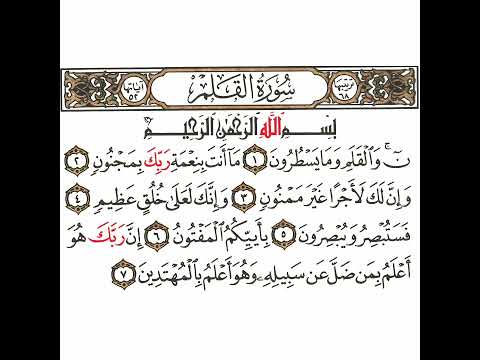 ترتيبها ٦٨
سُورَةُ الْقَلَمِ
آياتها ٥٢
بِسْمِ اللَّهِ الرَّحْمَٰنِ الرَّحِيمِ
نٓ ۚ وَالْقَلَمِ وَمَا يَسْطُرُونَ ١ مَا أَنتَ بِنِعْمَةِ رَبِّكَ بِمَجْنُونٍ ٢
وَإِنَّ لَكَ لَأَجْرًا غَيْرَ مَمْنُونٍ ٣ وَإِنَّكَ لَعَلَىٰ خُلُقٍ عَظِيمٍ ٤
فَسَتُبْصِرُ وَيُبْصِرُونَ ٥ بِأَييِّكُمُ الْمَفْتُونُ ٦ إِنَّ رَبَّكَ هُوَ
أَعْلَمُ بِمَن ضَلَّ عَن سَبِيلِهِۦ وَهُوَ أَعْلَمُ بِالْمُهْتَدِينَ ٧